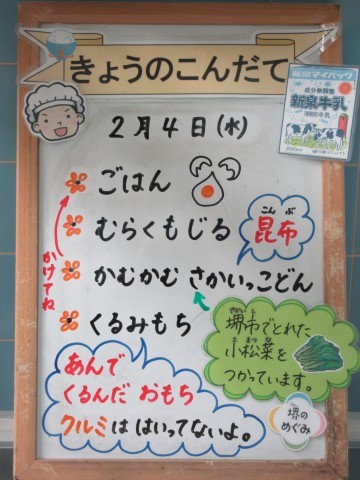 きょうのこんだて
新泉マイパック
成分無調整
新泉牛乳
200ml
2月4日(水)
ごはん
むらくもじる
こんぶ
昆布
かけてね
かむかむ さかいっこどん
くるみもち
さかいし
堺市でとれた
こまつな
小松菜を
つかっています。
堺の
めぐみ
あんで
くるんだ おもち
クルミは はいってないよ。